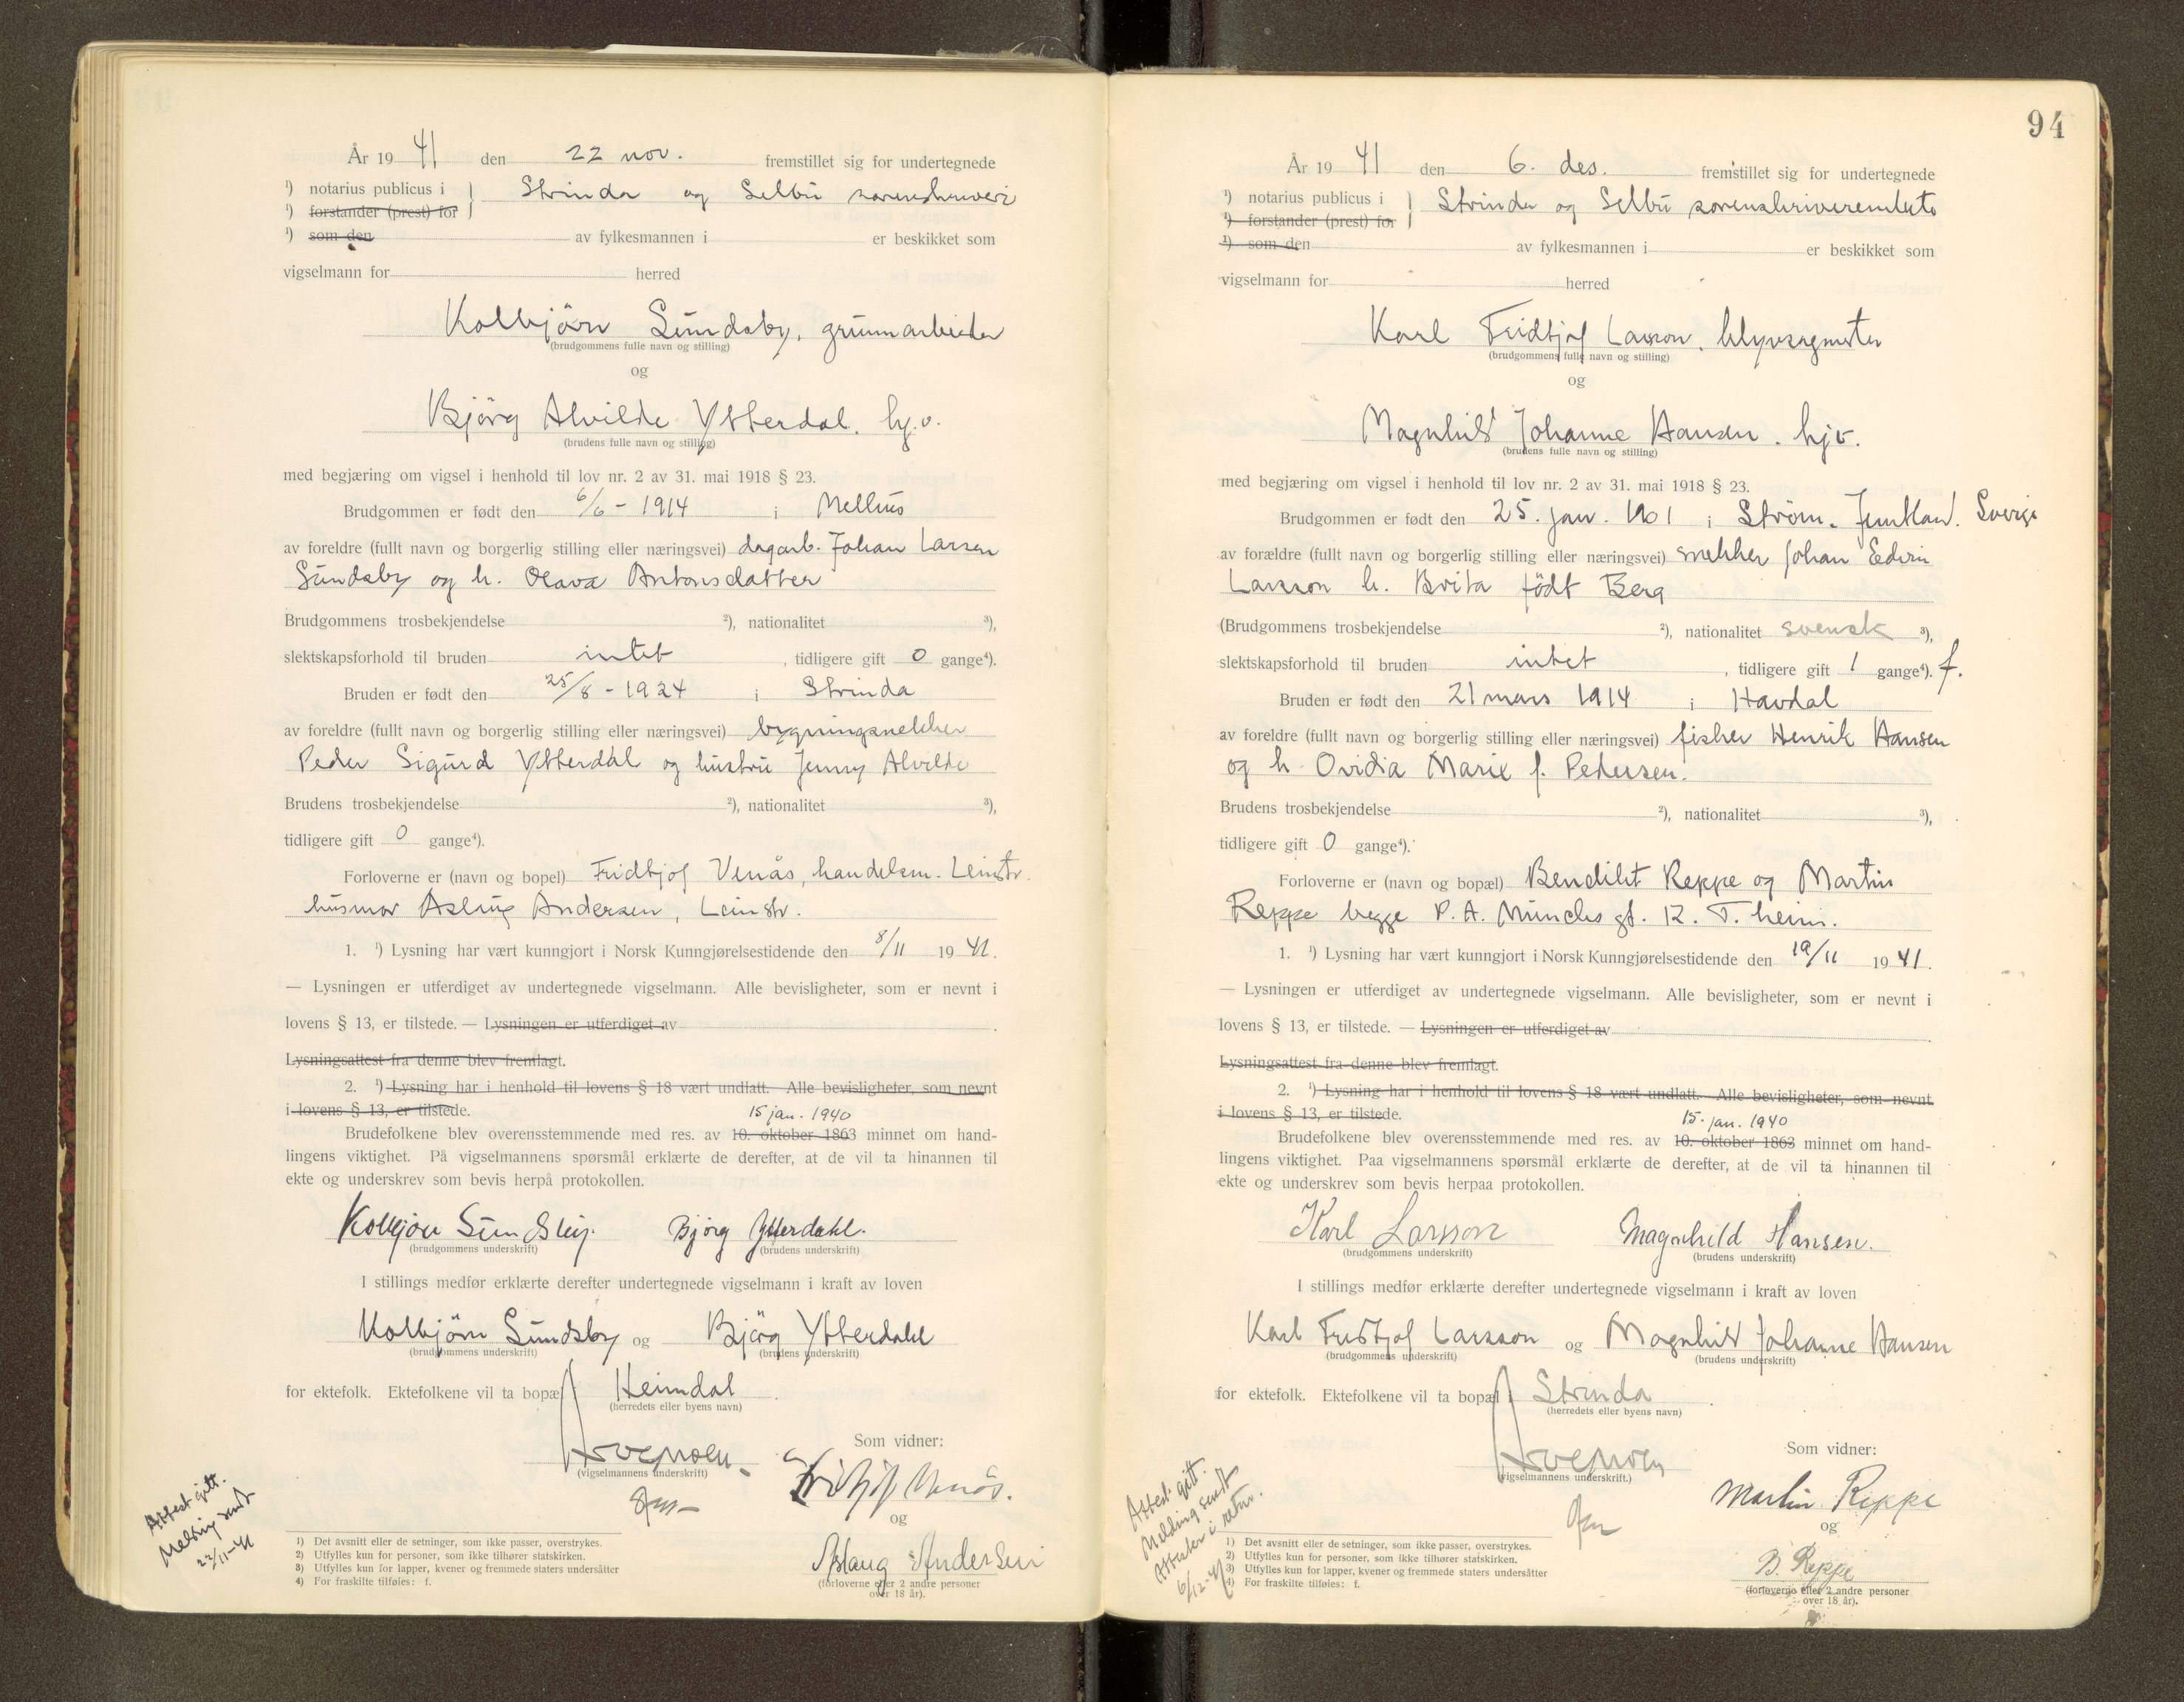 År 19 41 den 22 nov. fremstillet sig for undertegnede
¹) notarius publicus i } Strinda og Selbu sorenskriveri
¹) forstander (prest) for
¹) som den av fylkesmannen i er beskikket som
vigselmann for herred
Kolbjörn Sundsby, grunnarbeider
(brudgommens fulle navn og stilling)
og
Björg Alvilde Ytterdal. hj.v.
(brudens fulle navn og stilling)
med begjæring om vigsel i henhold til lov nr. 2 av 31. mai 1918 § 23.
Brudgommen er født den 6/6 - 1914 i Melhus
av foreldre (fullt navn og borgerlig stilling eller næringsvei) dagarb. Johan Larsen
Sundsby og h. Olava Antonsdatter
Brudgommens trosbekjendelse ²), nationalitet ³),
slektskapsforhold til bruden intet , tidligere gift 0 gange⁴).
Bruden er født den 25/8 - 1924 i Strinda
av foreldre (fullt navn og borgerlig stilling eller næringsvei) bygningsnekker
Peder Sigurd Ytterdal og hustru Jenny Alvilde
Brudens trosbekjendelse ²), nationalitet ³),
tidligere gift 0 gange⁴).
Forloverne er (navn og bopel) Fridtjof Venås, handelsm. Leinstr.
husmor Aslaug Andersen, Leinstr.
1. ¹) Lysning har vært kunngjort i Norsk Kunngjørelsestidende den 8/11 19 41.
— Lysningen er utferdiget av undertegnede vigselmann. Alle bevisligheter, som er nevnt i
lovens § 13, er tilstede. — Lysningen er utferdiget av .
Lysningsattest fra denne blev fremlagt.
2. ¹) Lysning har i henhold til lovens § 18 vært undlatt. Alle bevisligheter, som nevnt
i lovens § 13, er tilstede.
15 jan. 1940
Brudefolkene blev overensstemmende med res. av 10. oktober 1863 minnet om hand-
lingens viktighet. På vigselmannens spørsmål erklærte de derefter, at de vil ta hinannen til
ekte og underskrev som bevis herpå protokollen.
Kolbjörn Sundsby. Bjørg Ytterdahl.
(brudgommens underskrift) (brudens underskrift)
I stillings medfør erklærte derefter undertegnede vigselmann i kraft av loven
Kolbjörn Sundsby og Björg Ytterdahl
(brudgommens underskrift) (brudens underskrift)
for ektefolk. Ektefolkene vil ta bopæl i Heimdal .
(herredets eller byens navn)
Som vidner:
(vigselmannens underskrift)
Fridtjof Venås.
og
Aslaug Andersen
(forloverne eller 2 andre personer
over 18 år).
Attest gitt.
Melding sendt
22/11-41
1) Det avsnitt eller de setninger, som ikke passer, overstrykes.
2) Utfylles kun for personer, som ikke tilhører statskirken.
3) Utfylles kun for lapper, kvener og fremmede staters undersåtter
4) For fraskilte tilføies: f.
94
År 19 41 den 6. des. fremstillet sig for undertegnede
¹) notarius publicus i } Strinda og Selbu sorenskriverembete
¹) forstander (prest) for
¹) som den av fylkesmannen i er beskikket som
vigselmann for herred
Karl Fridtjof Larsson, blyvsagmester
(brudgommens fulle navn og stilling)
og
Magnhild Johanne Hansen. hjv.
(brudens fulle navn og stilling)
med begjæring om vigsel i henhold til lov nr. 2 av 31. mai 1918 § 23.
Brudgommen er født den 25. jan. 1901 i Ström. Jemtland. Sverige
av forældre (fullt navn og borgerlig stilling eller næringsvei) snekker Johan Edvin
Larsson h. Brita födt Berg
(Brudgommens trosbekjendelse ²), nationalitet svensk ³),
slektskapsforhold til bruden intet , tidligere gift 1 gange⁴). f.
Bruden er født den 21 mars 1914 i Havdal
av foreldre (fullt navn og borgerlig stilling eller næringsvei) fisker Henrik Hansen
og h. Ovidia Marie f. Pedersen.
Brudens trosbekjendelse ²), nationalitet ³),
tidligere gift 0 gange⁴).
Forloverne er (navn og bopæl) Bendikt Reppe og Martin
Reppe begge P. A. Munchs gt. 12. T.heim.
1. ¹) Lysning har vært kunngjort i Norsk Kunngjørelsestidende den 19/11 19 41.
— Lysningen er utferdiget av undertegnede vigselmann. Alle bevisligheter, som er nevnt i
lovens § 13, er tilstede. — Lysningen er utferdiget av .
Lysningsattest fra denne blev fremlagt.
2. ¹) Lysning har i henhold til lovens § 18 vært undlatt. Alle bevisligheter, som nevnt
i lovens § 13, er tilstede.
15. jan. 1940
Brudefolkene blev overensstemmende med res. av 10. oktober 1863 minnet om hand-
lingens viktighet. Paa vigselmannens spørsmål erklærte de derefter, at de vil ta hinannen til
ekte og underskrev som bevis herpaa protokollen.
Karl Larsson Magnhild Hansen.
(brudgommens underskrift) (brudens underskrift)
I stillings medfør erklærte derefter undertegnede vigselmann i kraft av loven
Karl Fridtjof Larsson og Magnhild Johanne Hansen
(brudgommens underskrift) (brudens underskrift)
for ektefolk. Ektefolkene vil ta bopæl i Strinda .
(herredets eller byens navn)
Som vidner:
(vigselmannens underskrift.)
Martin Reppe
og
B. Reppe
(forloverne eller 2 andre personer
over 18 år).
Attest gitt.
Melding sendt
Attester i retur.
6/12-41
1) Det avsnitt eller de setninger, som ikke passer, overstrykes.
2) Utfylles kun for personer, som ikke tilhører statskirken.
3) Utfylles kun for lapper, kvener og fremmede staters undersåtter
4) For fraskilte tilføies: f.